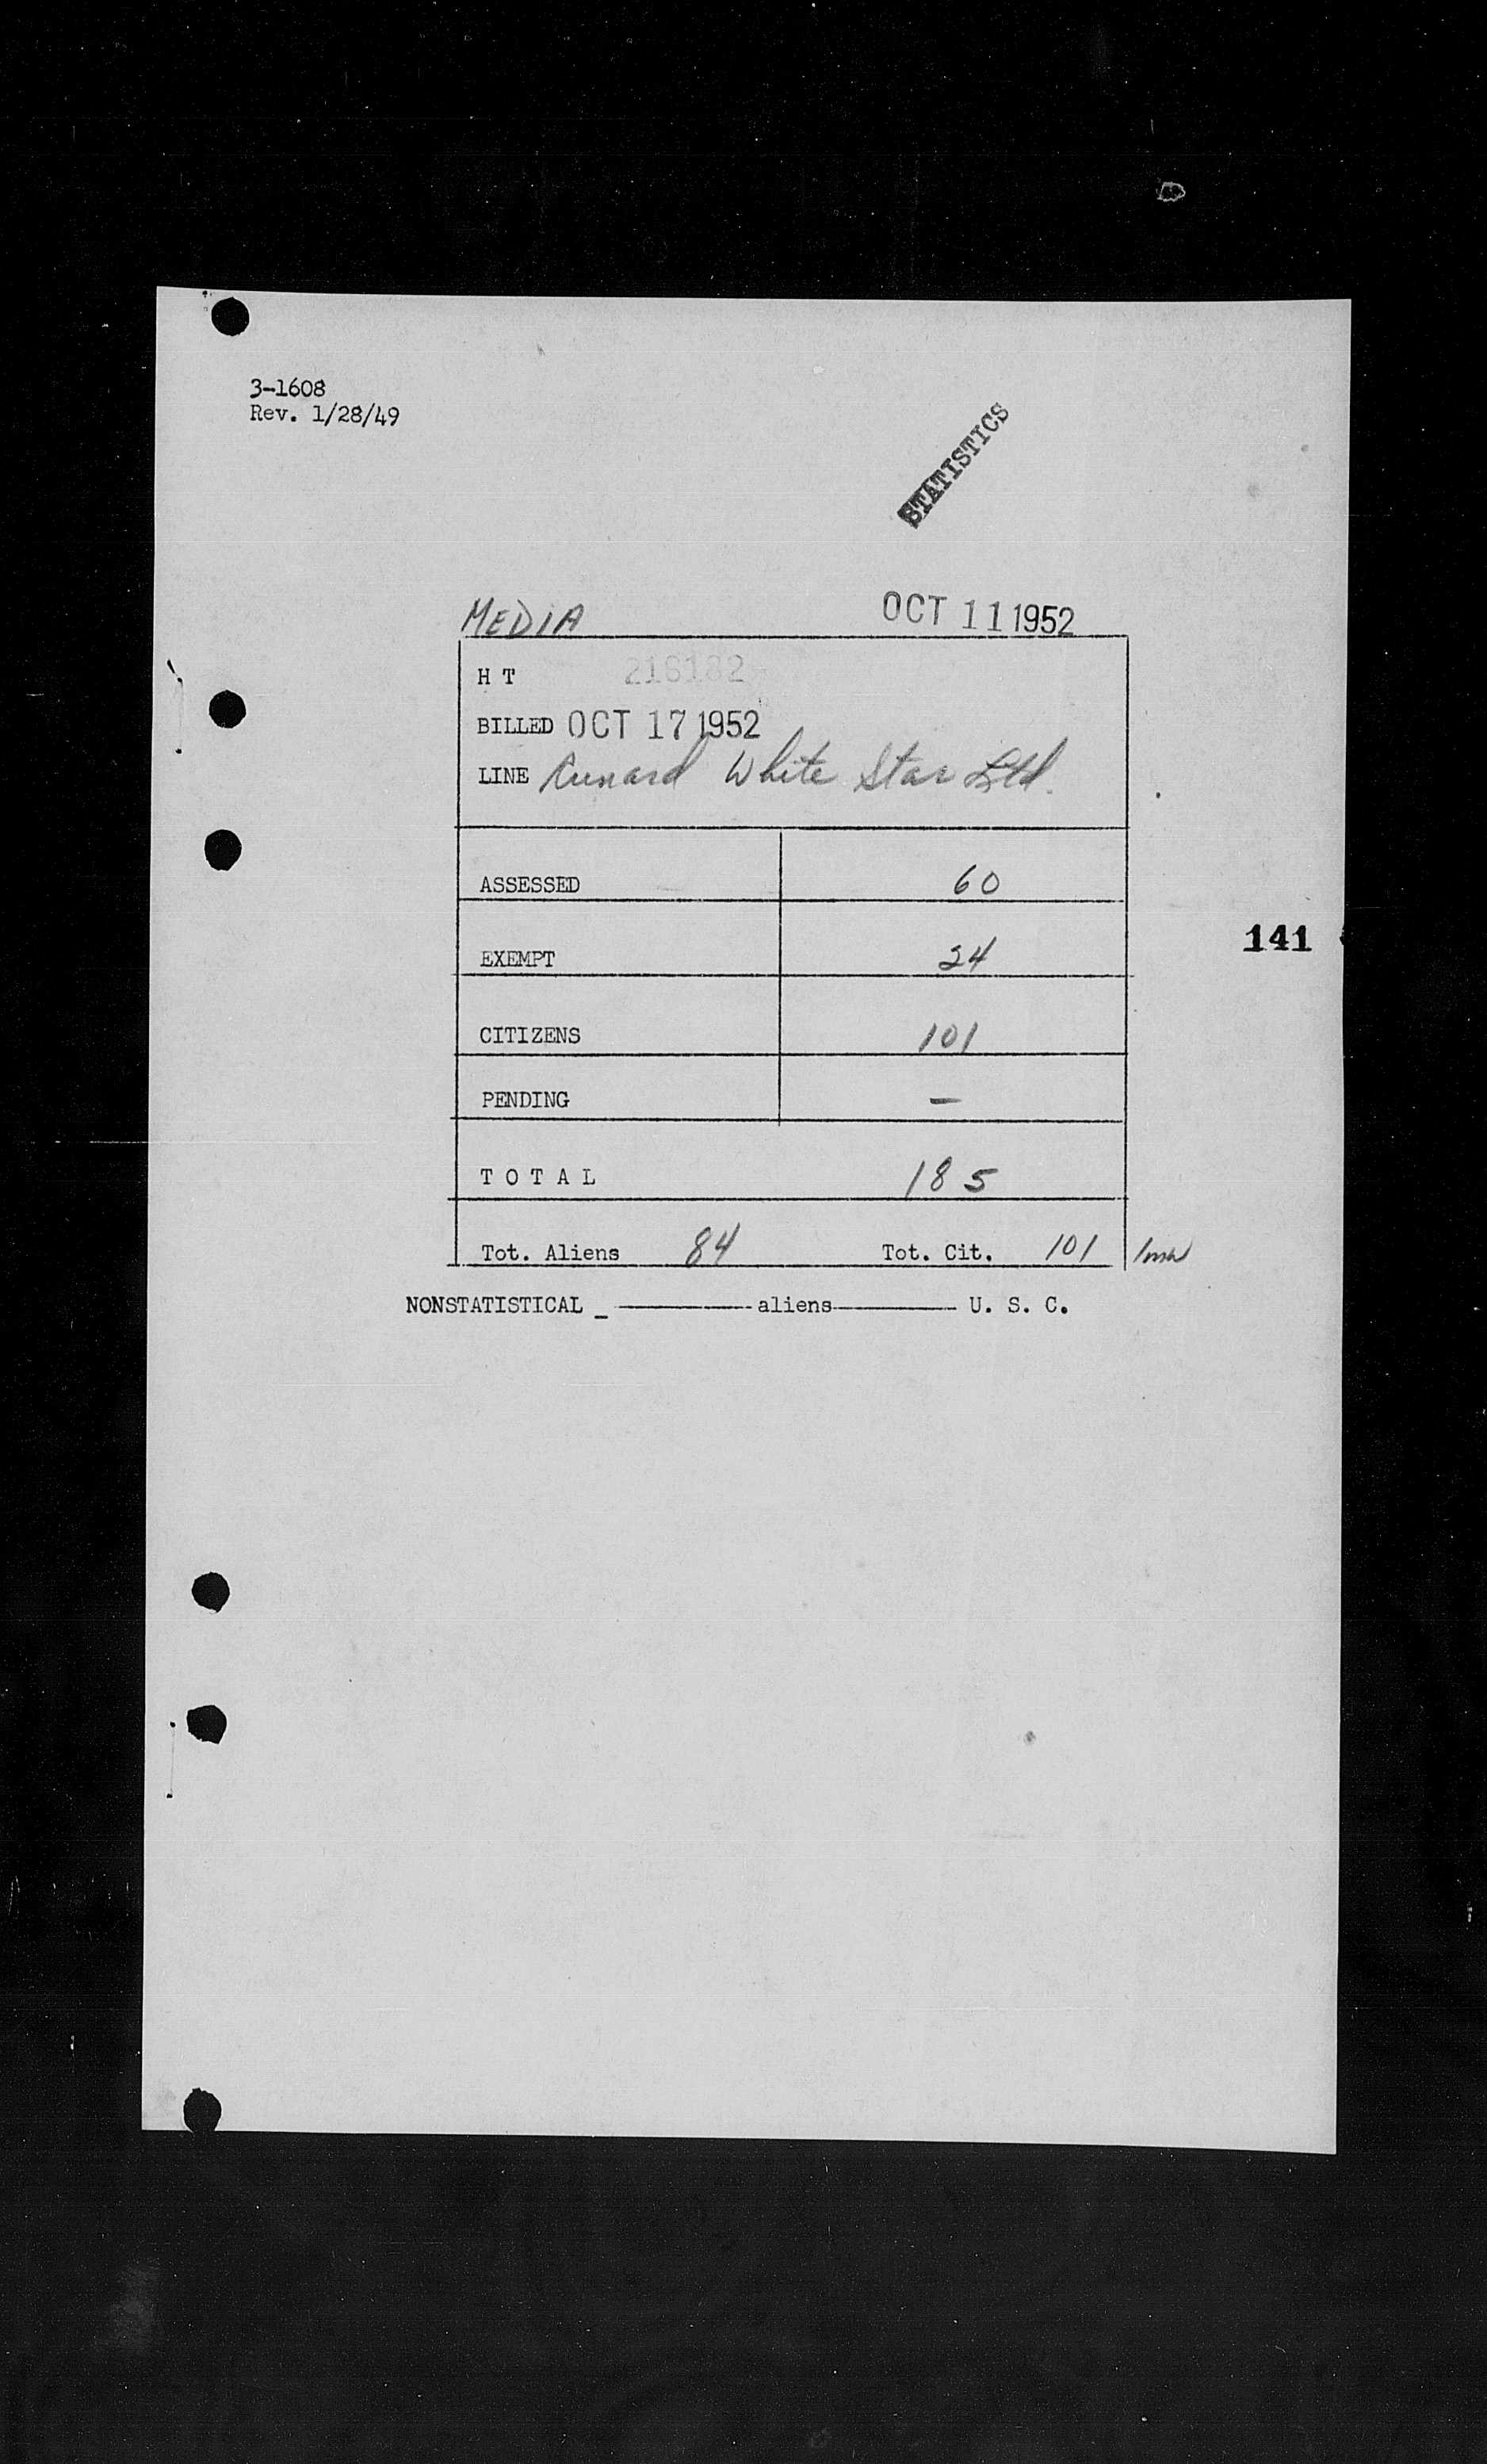 3-1608
Rev. 1/28/49
STATISTICS
MEDIA OCT 11 1952
H T
BILLED OCT 17 1952
LINE Cunard White Star Ltd.
ASSESSED 60
EXEMPT 24
141
CITIZENS 101
PENDING —
T O T A L 185
Tot. Aliens 84 Tot. Cit. 101
NONSTATISTICAL _ ———— aliens ———— U. S. C.